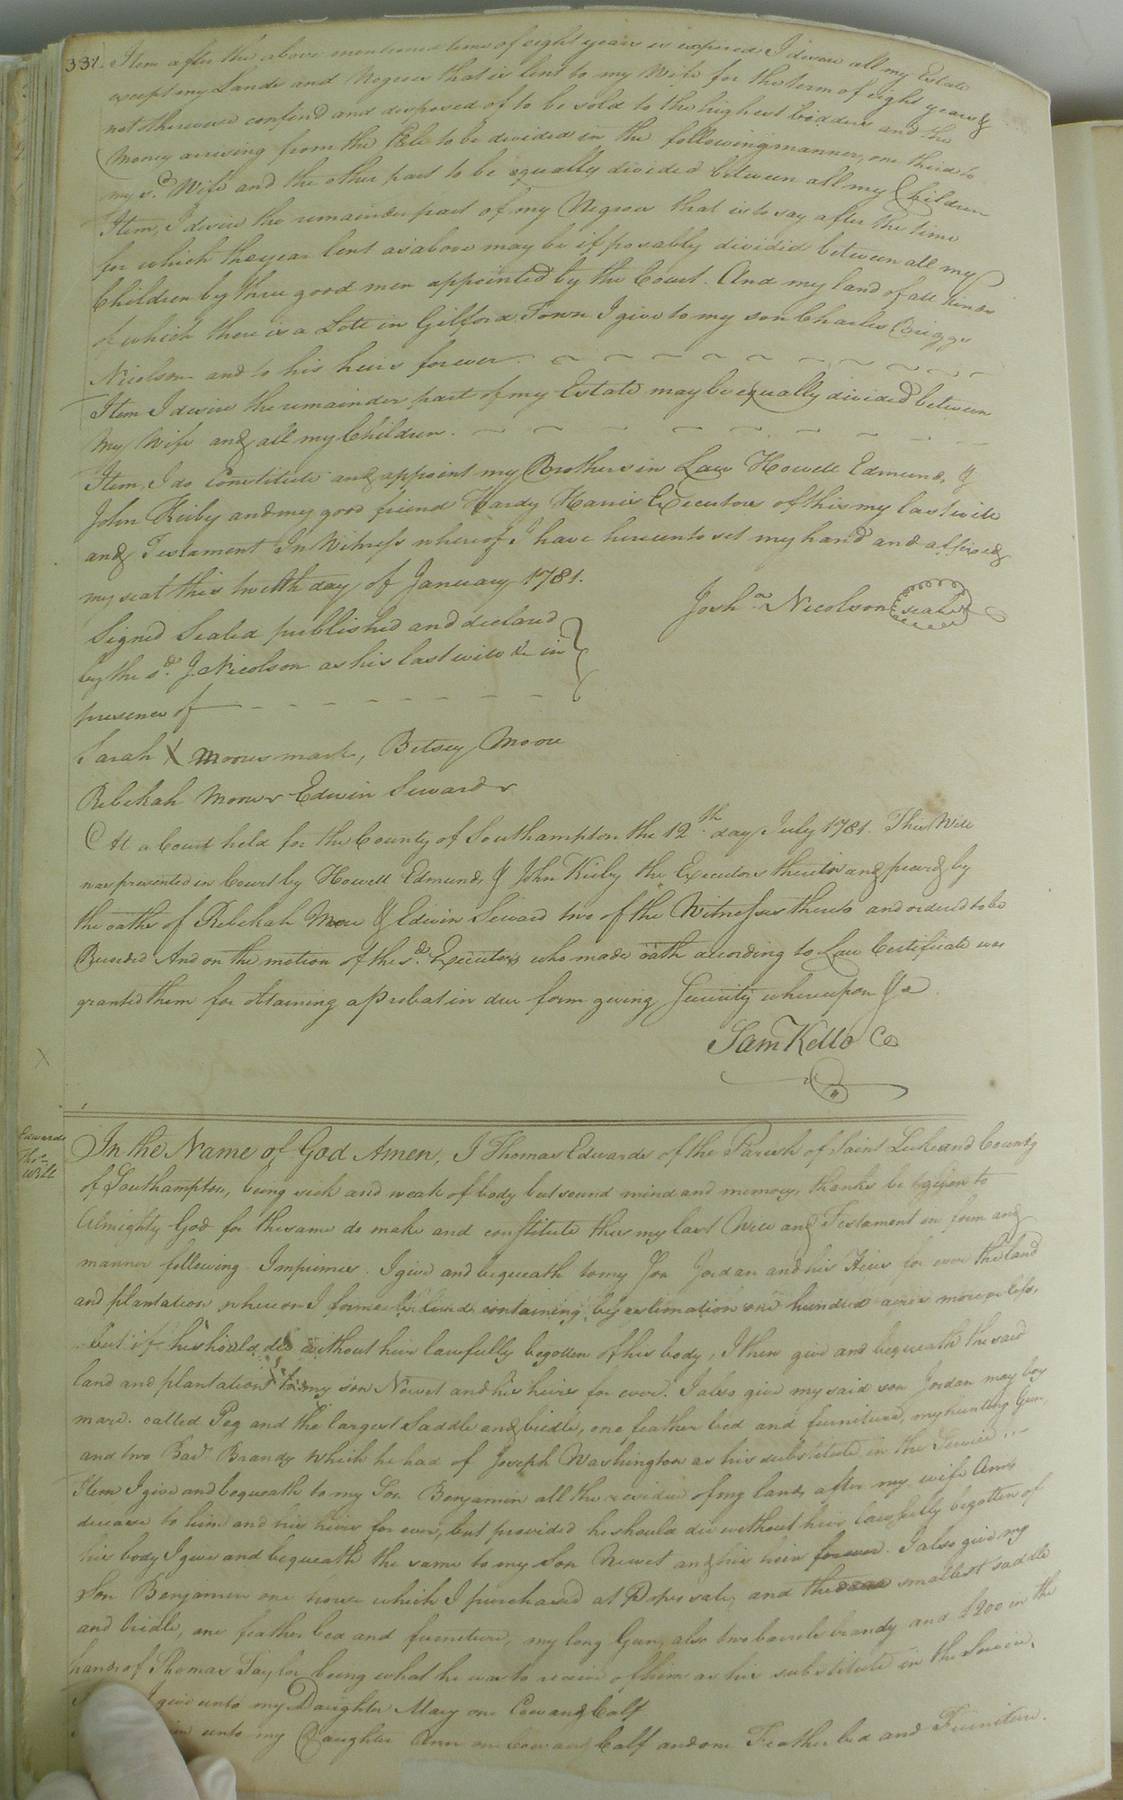 331. Item after the above mentioned time of eight years is expired I desire all my Estate
except my Lands and Negroes that is lent to my Wife for the term of eight years &
not therewise confind and disposed of to be sold to the highest bidders and the
Money arising from the Sale to be divided in the following manner, one third to
my sd. Wife and the other part to be equally divided between all my Children
Item, I desire the remainder part of my Negroes that is to say after the time
for which they are lent as above may be if posably divided between all my
Children by three good men appointed by the Court. And my land of all kinds
of which there is a Lott in Gilford Town I give to my son Charles Briggs
Nicolson and to his heirs forever
Item I desire the remainder part of my Estate may be equally divided between
My Wife and all my Children.
Item, I do Constitute and appoint my Brothers in Law Howell Edmunds, &
John Kirby and my good friend Hardy Harris Executors of this my last will
and Testament In Witness whereof I have hereunto set my hand and affixed
my seal this twelth day of January 1781.
Josha. Nicolson seal
Signed Sealed published and declared
by the sd. J. Nicolson as his last will &c in
presence of
Sarah X Moores mark, Betsey Moore
Rebekah Moore Edwin Seward
At a Court held for the County of Southampton the 12th. day July 1781. This Will
was presented in Court by Howell Edmunds, & John Kirby the Executors therein and proved by
the oaths of Rebekah Moore & Edwin Seward two of the Witnesses thereto and ordered to be
Recorded And on the motion of the sd. Executors who made oath according to Law Certificate was
granted them for obtaining a Probat in due form giving Security whereupon &c.
Sam Kello CC
Edwards
Thos.
Will
In the Name of God Amen, I Thomas Edwards of the Parish of Saint Luke and County
of Southampton, being sick and weak of body but sound mind and memory, thanks be given to
Almighty God for the same do make and constitute this my last Will and Testament in form and
manner following Imprimes. I give and bequeath to my Son Jordan and his Heirs for ever the land
and plantation whereon I formerly lived, containing by estimation one hundred acres more or less,
but if he should die without heir lawfully begotten of his body, I then give and bequeath the said
land and plantation to my son Newet and his heirs for ever. I also give my said son Jordan may bay
mare called Peg and the largest Saddle and bridle, one feather bed and furniture, my hunting Gun,
and two Barl Brandy which he had of Joseph Washington as his substitute in the Service
Item I give and bequeath to my Son Benjamin all the residue of my land, after my wife Ann's
decease to him and his heirs for ever, but provided he should die without heir lawfully begotten of
his body I give and bequeath the same to my Son Newet and his heirs forever. I also give my
Son Benjamin one horse which I purchased at Popes sale, and the smallest saddle
and bridle, one feather bed and furniture, my long Gun, also two barrels brandy and £200 in the
hands of Thomas Taylor being what he was to receive of him as his substitute in the Service.
I give unto my Daughter Mary one Cow and Calf
unto my Daughter Ann one Cow and Calf and one Feather bed and Furniture.